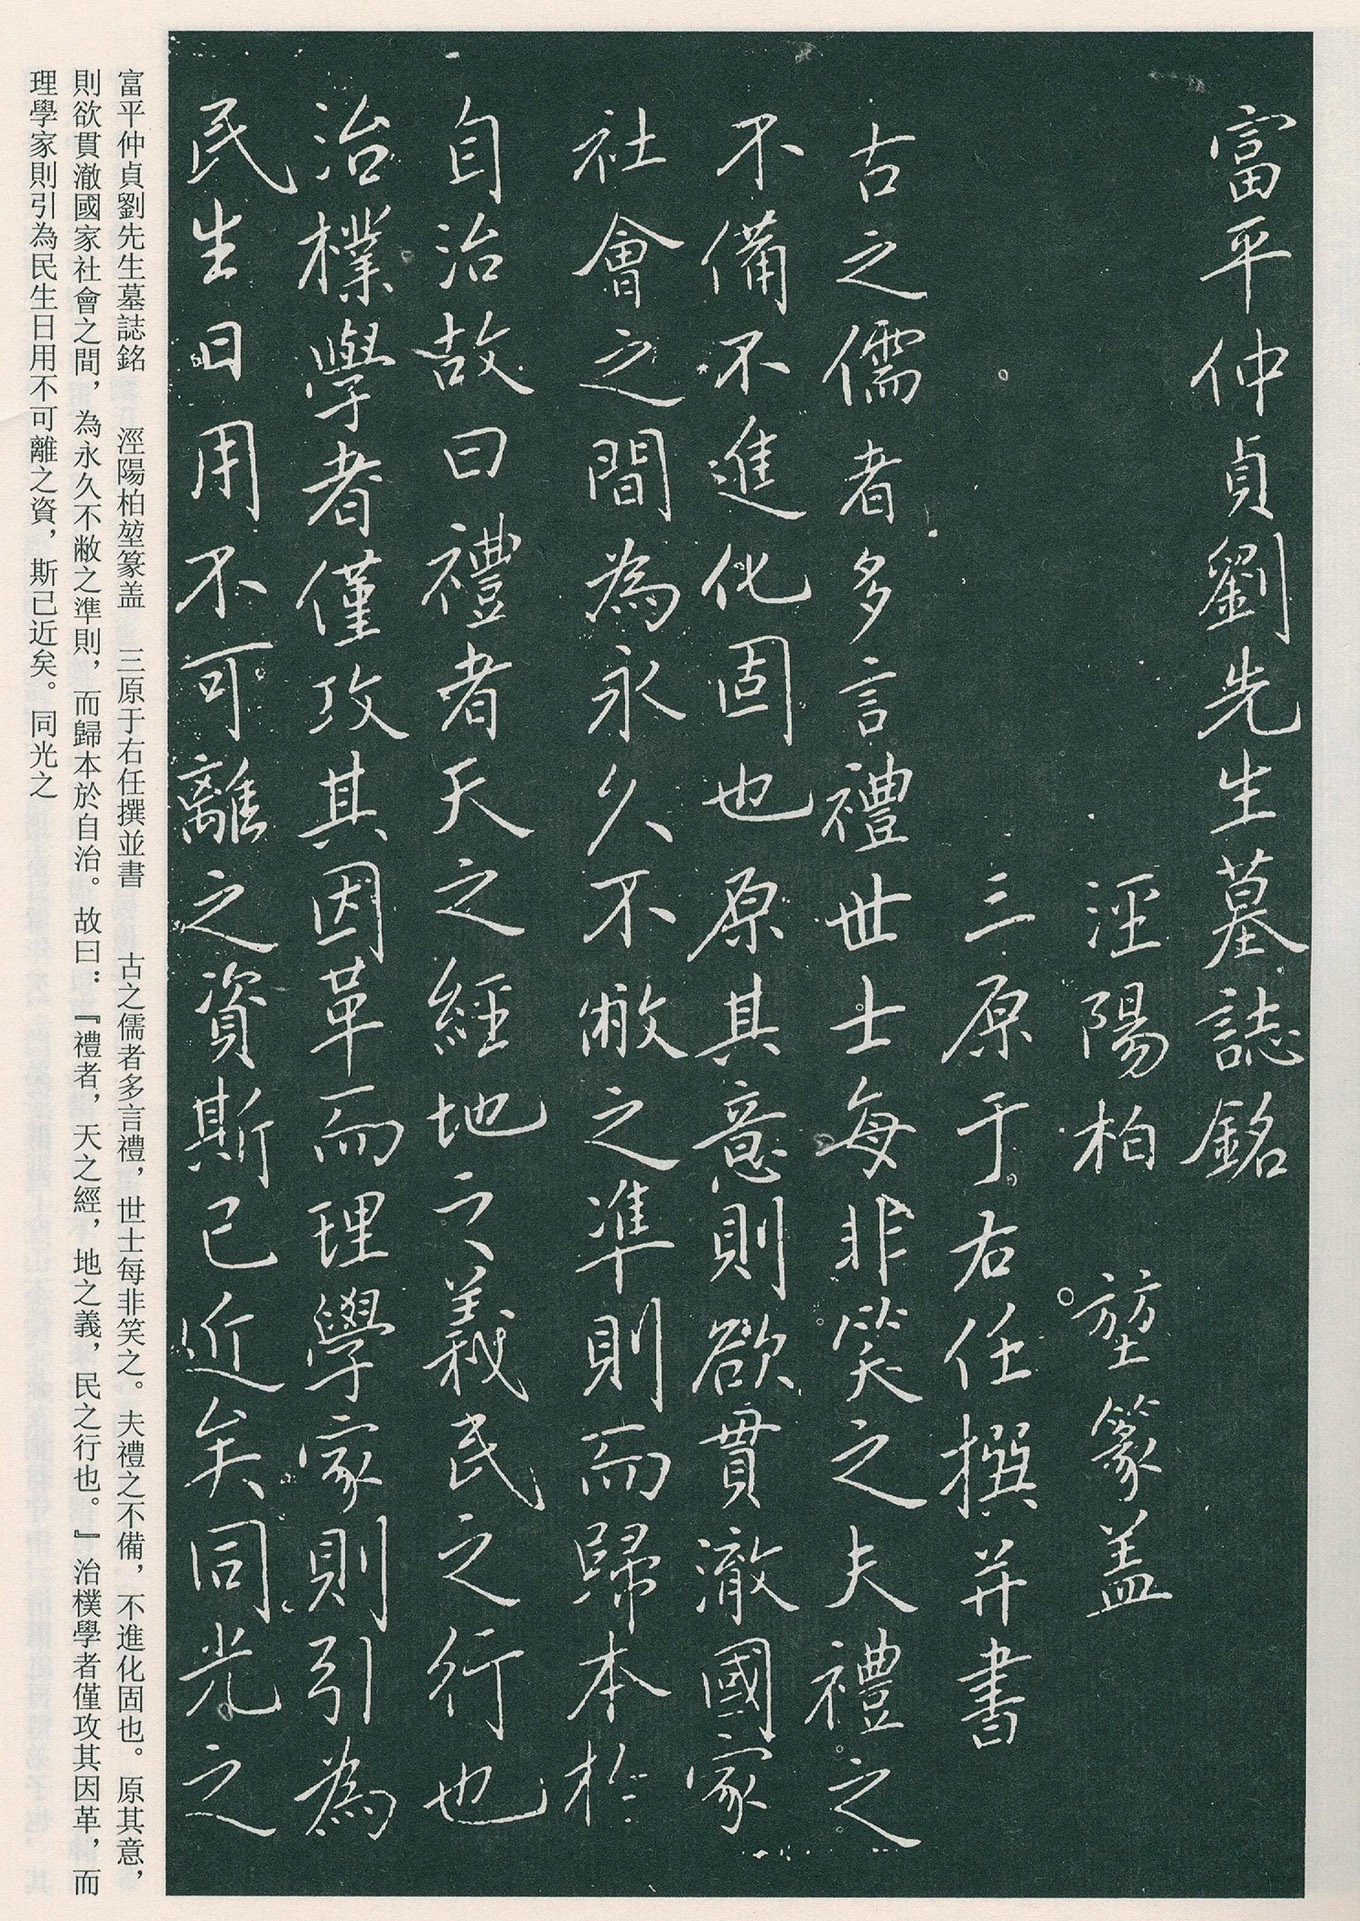 富平仲貞劉先生墓誌銘
涇陽柏堃篆盖
三原于右任撰并書
古之儒者多言禮世士每非笑之夫禮之
不備不進化固也原其意則欲貫澈國家
社會之間為永久不敝之準則而歸本於
自治故曰禮者天之經地之義民之行也
治樸學者僅攻其因革而理學家則引為
民生日用不可離之資斯已近矣同光之
富平仲貞劉先生墓誌銘　涇陽柏堃篆盖　三原于右任撰並書　古之儒者多言禮，世士每非笑之。夫禮之不備，不進化固也。原其意，
則欲貫澈國家社會之間，為永久不敝之準則，而歸本於自治。故曰：『禮者，天之經，地之義，民之行也。』治樸學者僅攻其因革，而
理學家則引為民生日用不可離之資，斯已近矣。同光之